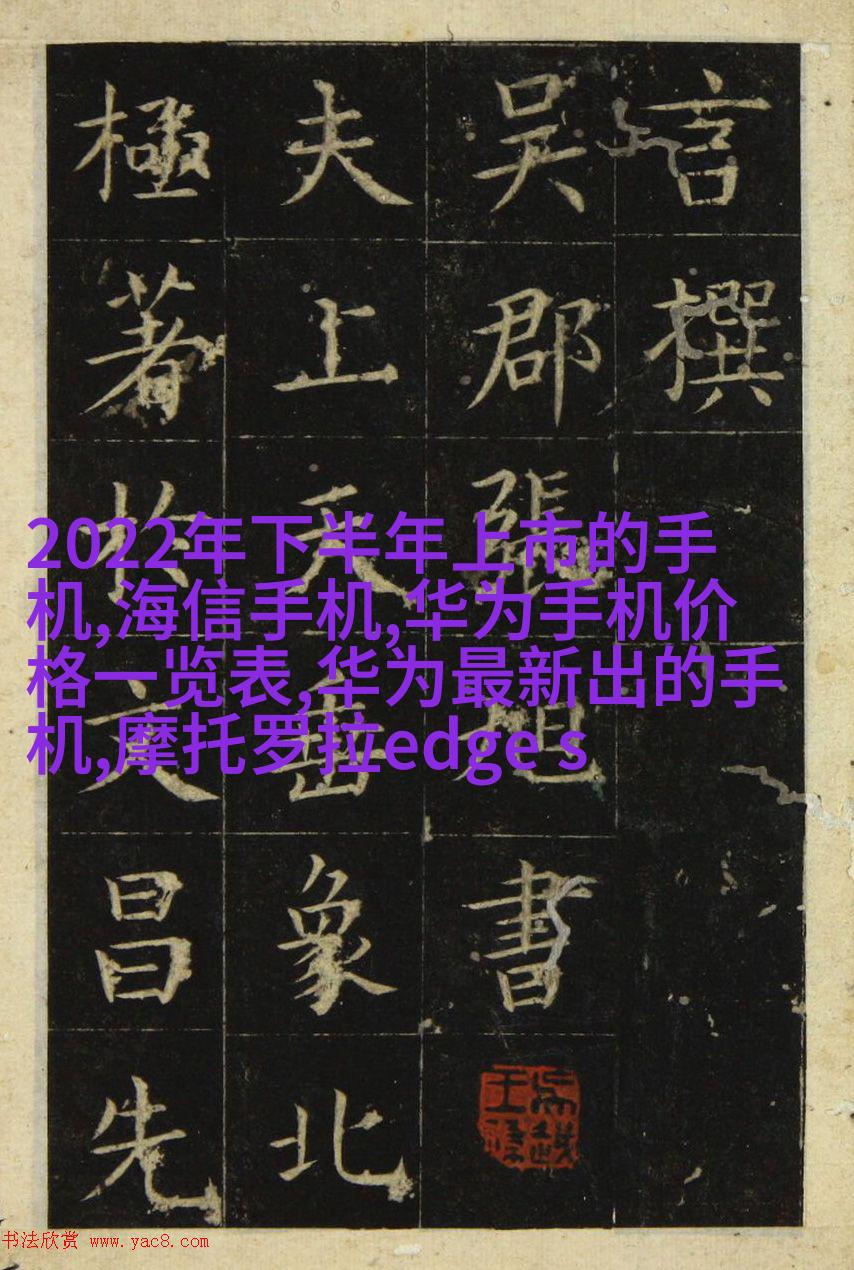 言撰
吳郡張旭書
夫上天垂象北
極著於文昌先
2022年下半年上市的手
机,海信手机,华为手机价
格一览表,华为最新出的手
机,摩托罗拉edge s
书法欣赏 www.yac8.com